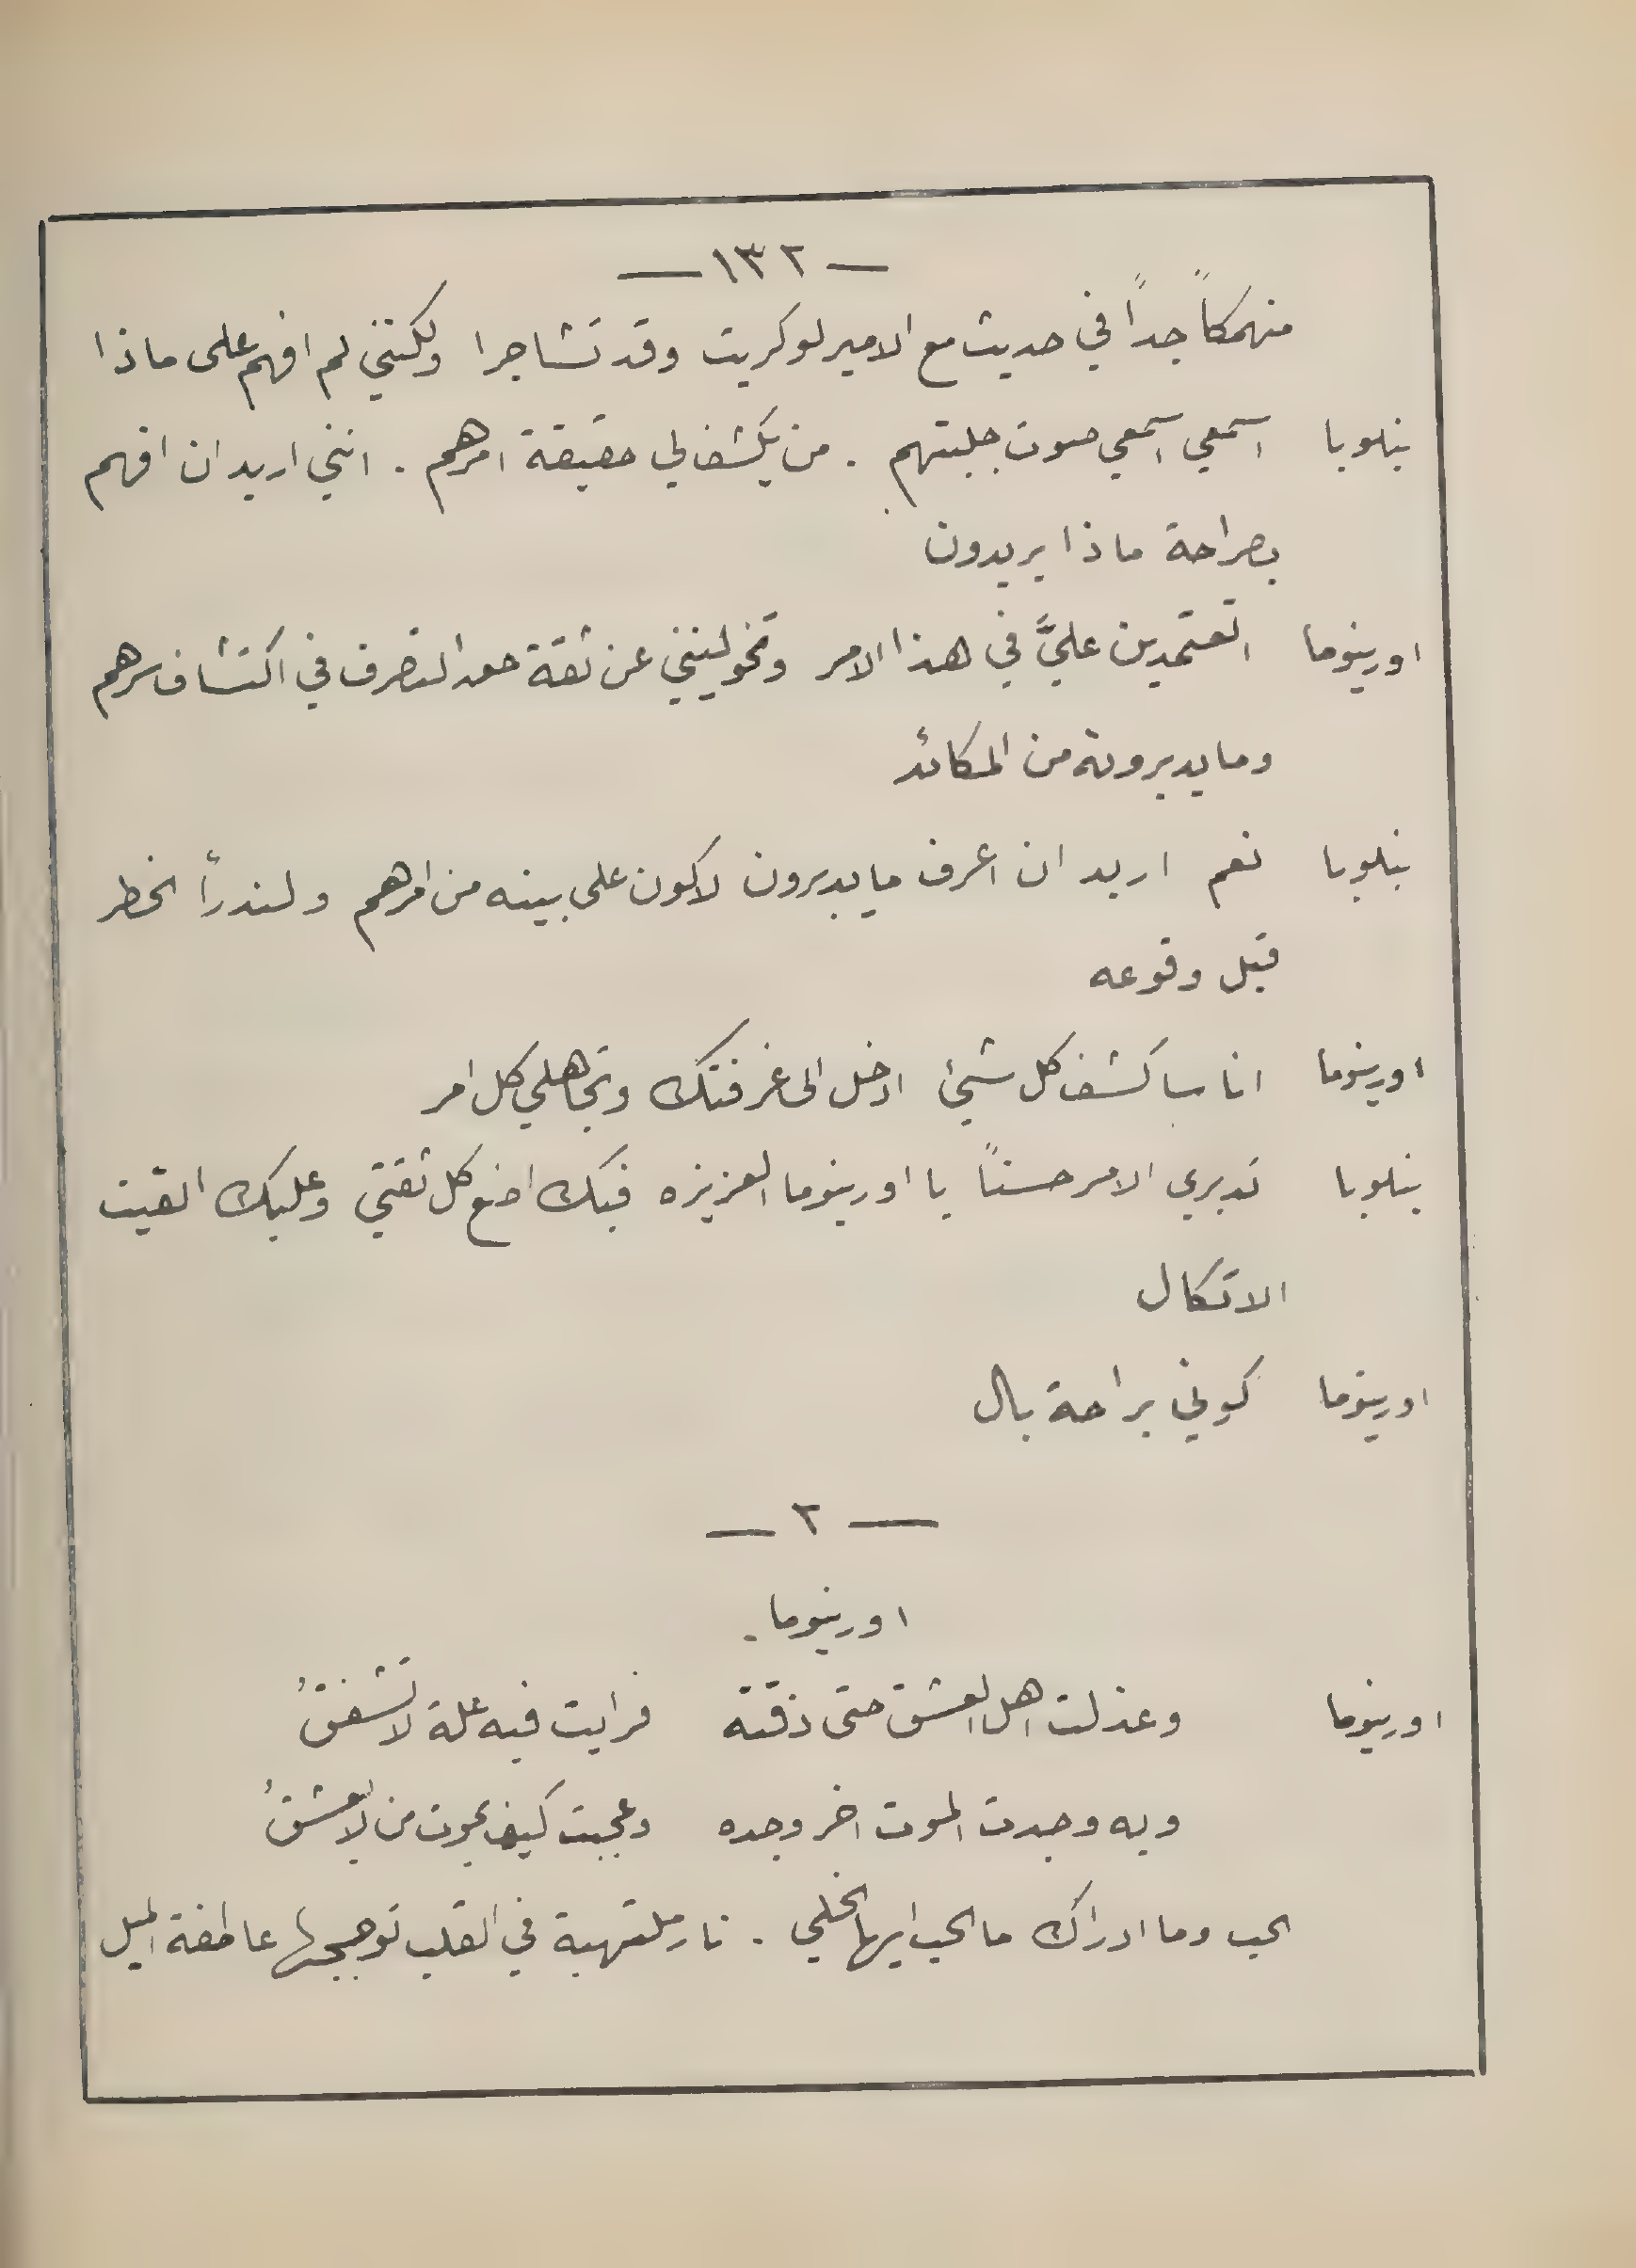 — ١٣٢ —
منهمكاً جداً في حديث مع الامير لوكريت وقد تشاجرا ولكنني لم افهم على ماذا
بنلوبا اسمعي اسمعي صوت جلبتهم . من يكشف لي حقيقة امرهم . انني اريد ان افهم
بصراحة ماذا يريدون
اورينوما اتعتمدين عليَّ في هذا الامر وتخولينني عن ثقة حق التصرف في اكتشاف سرهم
وما يدبرونة من المكائد
بنلوبا نعم اريد ان اعرف ما يدبرون لاكون على بينه من امرهم ولندرأ الخطر
قبل وقوعه
اورينوما انا ساكشف كل شيئ ادخل الى غرفتك وتجاهلي كل امر
بنلوبا تدبري الامر حسناً يا اورينوما العزيزه فبك اضع كل ثقتي وعليك القيت
الاتكال
اورينوما كوني براحة بال
— ٢ —
اورينوما .
اورينوما وعذلت اهل العشق حتى ذقتة فرايت فيه علة لا تشفقُ
وبه وجدت الموت اخر وجده وعجبت كيف يموت من لا يعشقُ
الحب وما ادراك ما الحب ايها الخلي . نار ملتهبة في القلب توهجها عاطفة الميل